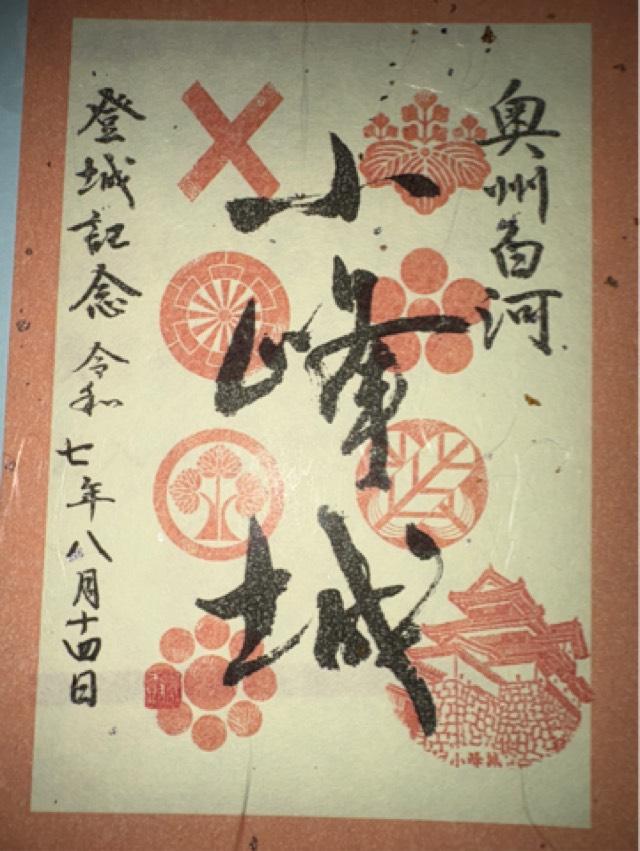 奥州白河
小峰城
登城記念 令和七年八月十四日
小峰城